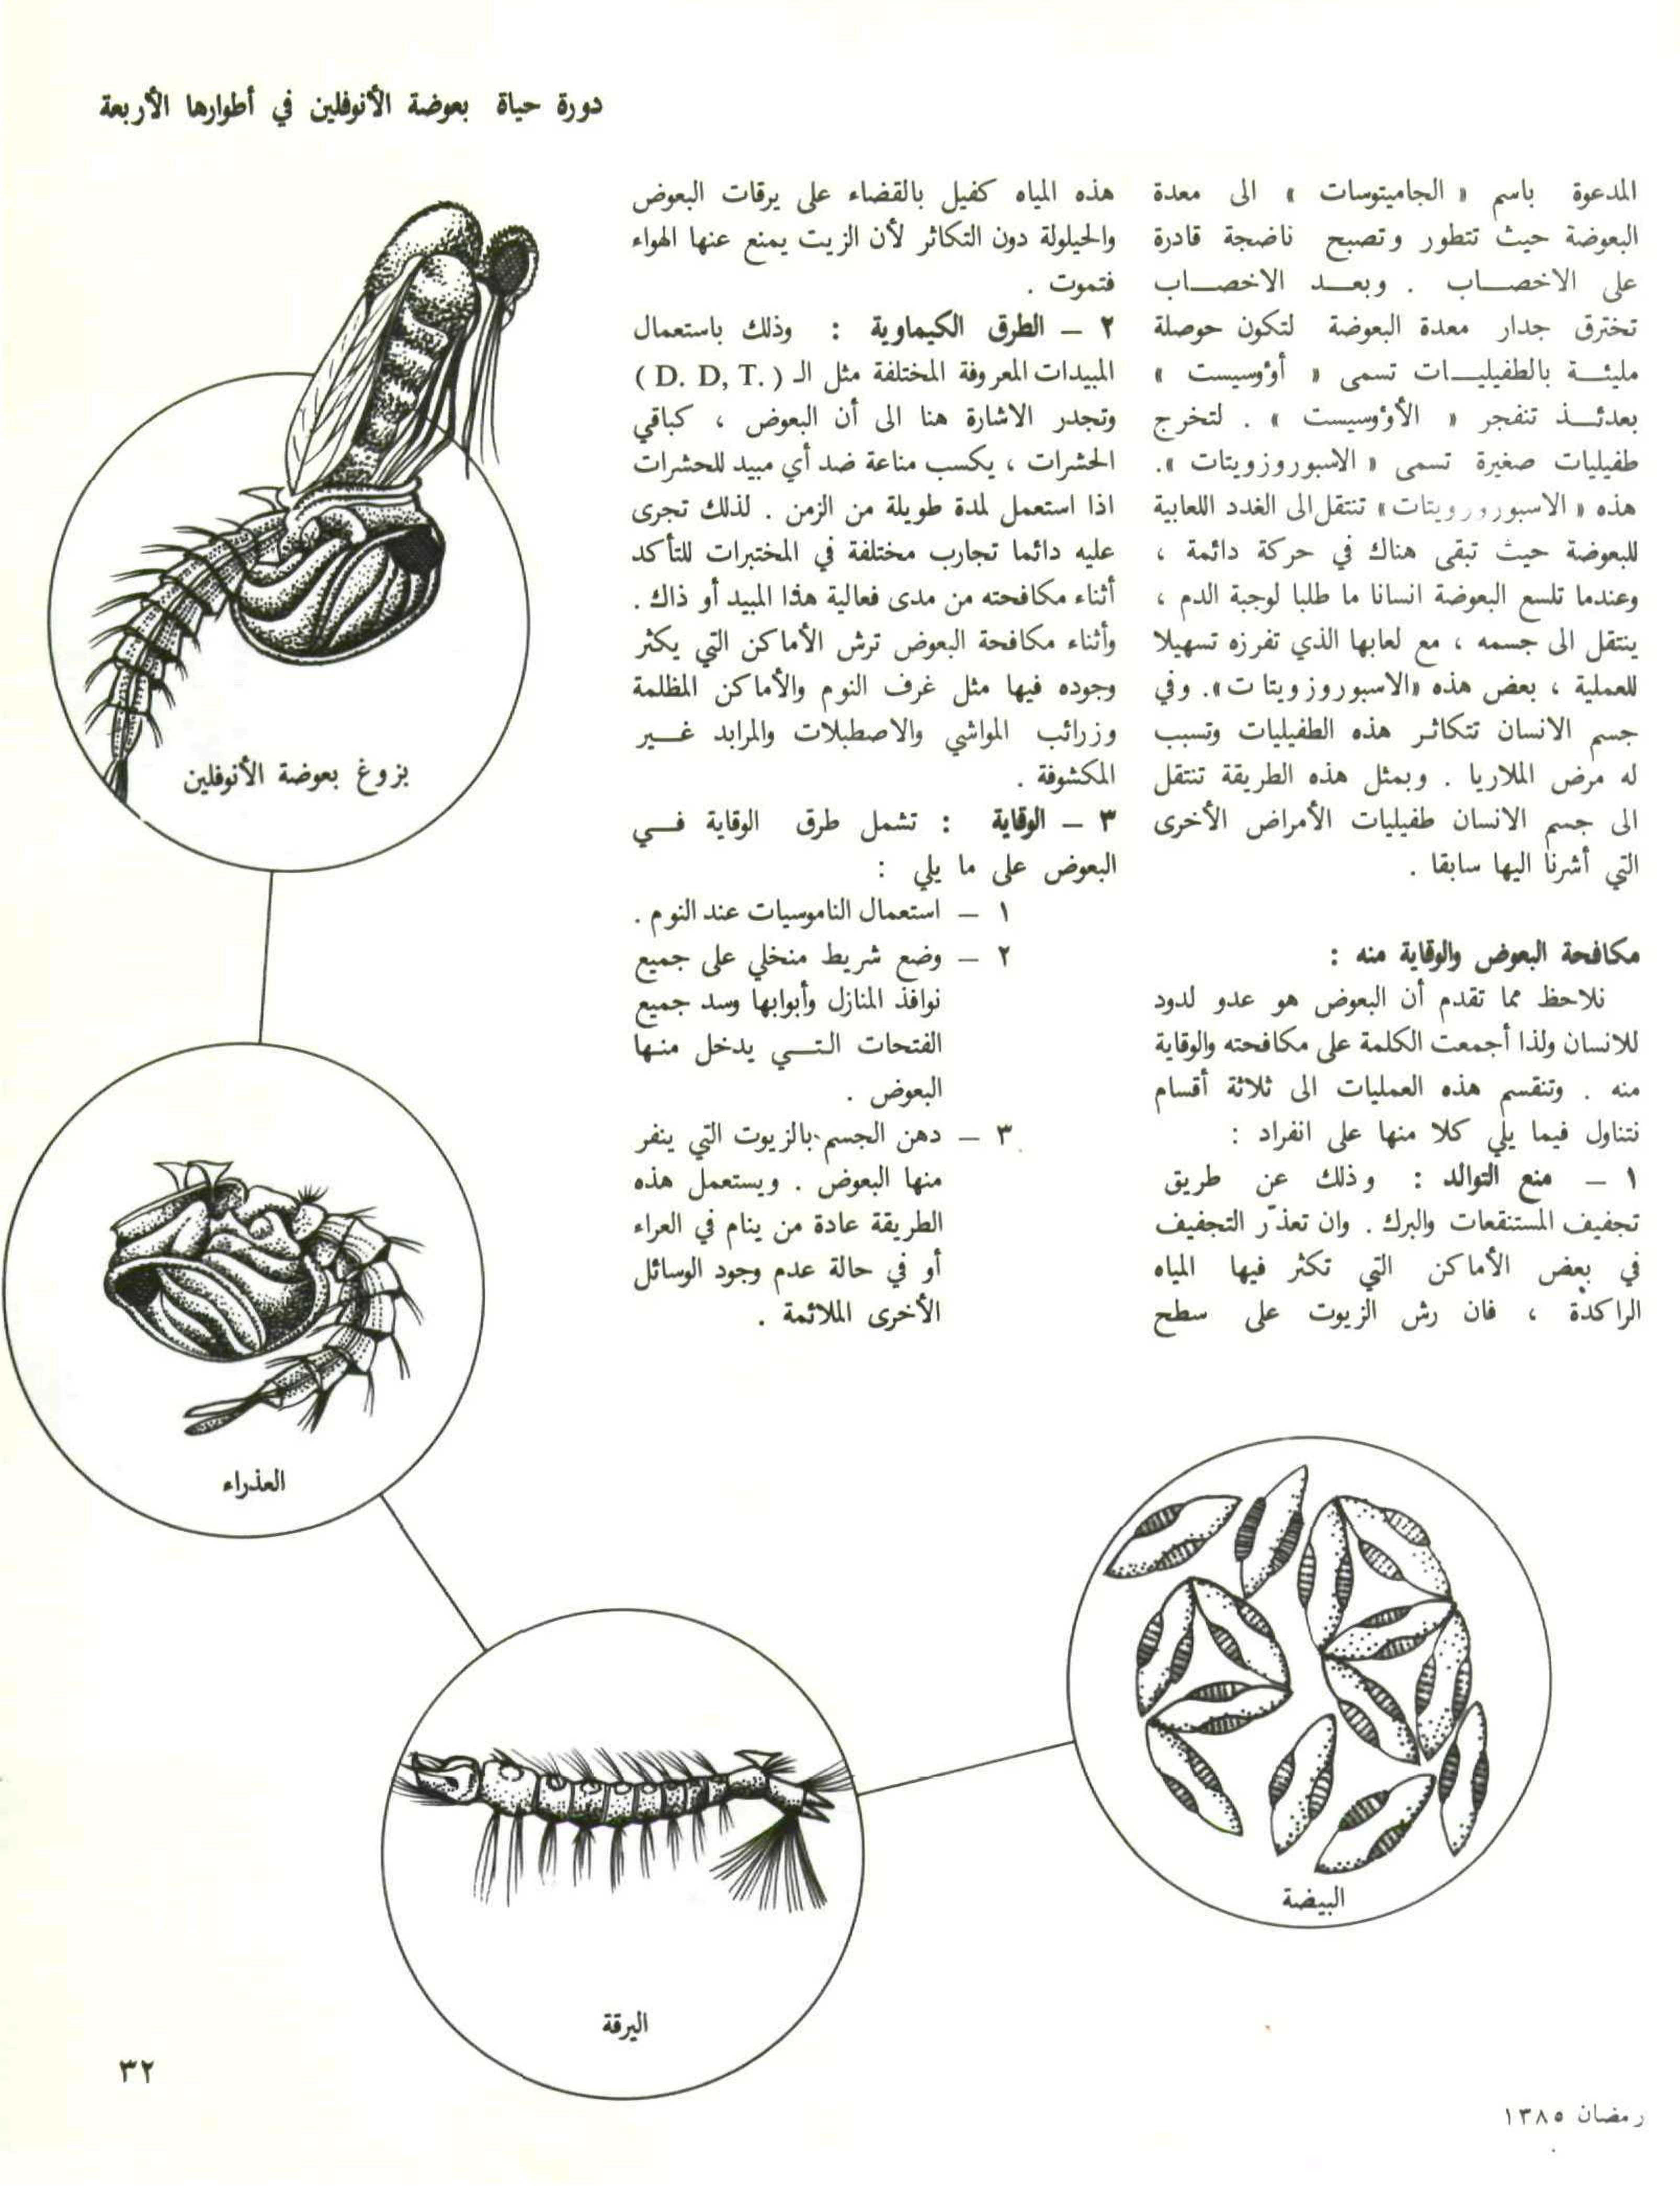 دورة حياة بعوضة الأنوفلين في أطوارها الأربعة
المدعوة باسم « الجاميتوسات » الى معدة
البعوضة حيث تتطور وتصبح ناضجة قادرة
على الاخصـــاب . وبعـــد الاخصـــاب
تخترق جدار معدة البعوضة لتكون حوصلة
مليئـــة بالطفيليـــات تسمى « أوؤسيست »
بعدئـــذ تنفجر « الأوؤسيست » . لتخرج
طفيليات صغيرة تسمى « الاسبوروزويتات ».
هذه « الاسبوروزويتات» تنتقل الى الغدد اللعابية
للبعوضة حيث تبقى هناك في حركة دائمة ،
وعندما تلسع البعوضة انسانا ما طلبا لوجبة الدم ،
ينتقل الى جسمه ، مع لعابها الذي تفرزه تسهيلا
للعملية ، بعض هذه «الاسبوروزويتات». وفي
جسم الانسان تتكاثر هذه الطفيليات وتسبب
له مرض الملاريا . وبمثل هذه الطريقة تنتقل
الى جسم الانسان طفيليات الأمراض الأخرى
التي أشرنا اليها سابقا .
مكافحة البعوض والوقاية منه :
نلاحظ مما تقدم أن البعوض هو عدو لدود
للانسان ولذا أجمعت الكلمة على مكافحته والوقاية
منه . وتنقسم هذه العمليات الى ثلاثة أقسام
نتناول فيما يلي كلا منها على انفراد :
١ – منع التوالد : وذلك عن طريق
تجفيف المستنقعات والبرك . وان تعذّر التجفيف
في بعض الأماكن التي تكثر فيها المياه
الراكدة ، فان رش الزيوت على سطح
هذه المياه كفيل بالقضاء على يرقات البعوض
والحيلولة دون التكاثر لأن الزيت يمنع عنها الهواء
فتموت .
٢ – الطرق الكيماوية : وذلك باستعمال
المبيدات المعروفة المختلفة مثل الـ (D. D, T.)
وتجدر الاشارة هنا الى أن البعوض ، كباقي
الحشرات ، يكسب مناعة ضد أي مبيد للحشرات
اذا استعمل لمدة طويلة من الزمن . لذلك تجرى
عليه دائما تجارب مختلفة في المختبرات للتأكد
أثناء مكافحته من مدى فعالية هذا المبيد أو ذاك .
وأثناء مكافحة البعوض ترش الأماكن التي يكثر
وجوده فيها مثل غرف النوم والأماكن المظلمة
وزرائب المواشي والاصطبلات والمرابد غـــير
المكشوفة .
٣ – الوقاية : تشمل طرق الوقاية فـــي
البعوض على ما يلي :
١ – استعمال الناموسيات عند النوم .
٢ – وضع شريط منخلي على جميع
نوافذ المنازل وأبوابها وسد جميع
الفتحات التـــي يدخل منـها
البعوض .
٣ – دهن الجسم بالزيوت التي ينفر
منها البعوض . ويستعمل هذه
الطريقة عادة من ينام في العراء
أو في حالة عدم وجود الوسائل
الأخرى الملائمة .
بزوغ بعوضة الأنوفلين
العذراء
البيضة
اليرقة
٣٢
رمضان ١٣٨٥